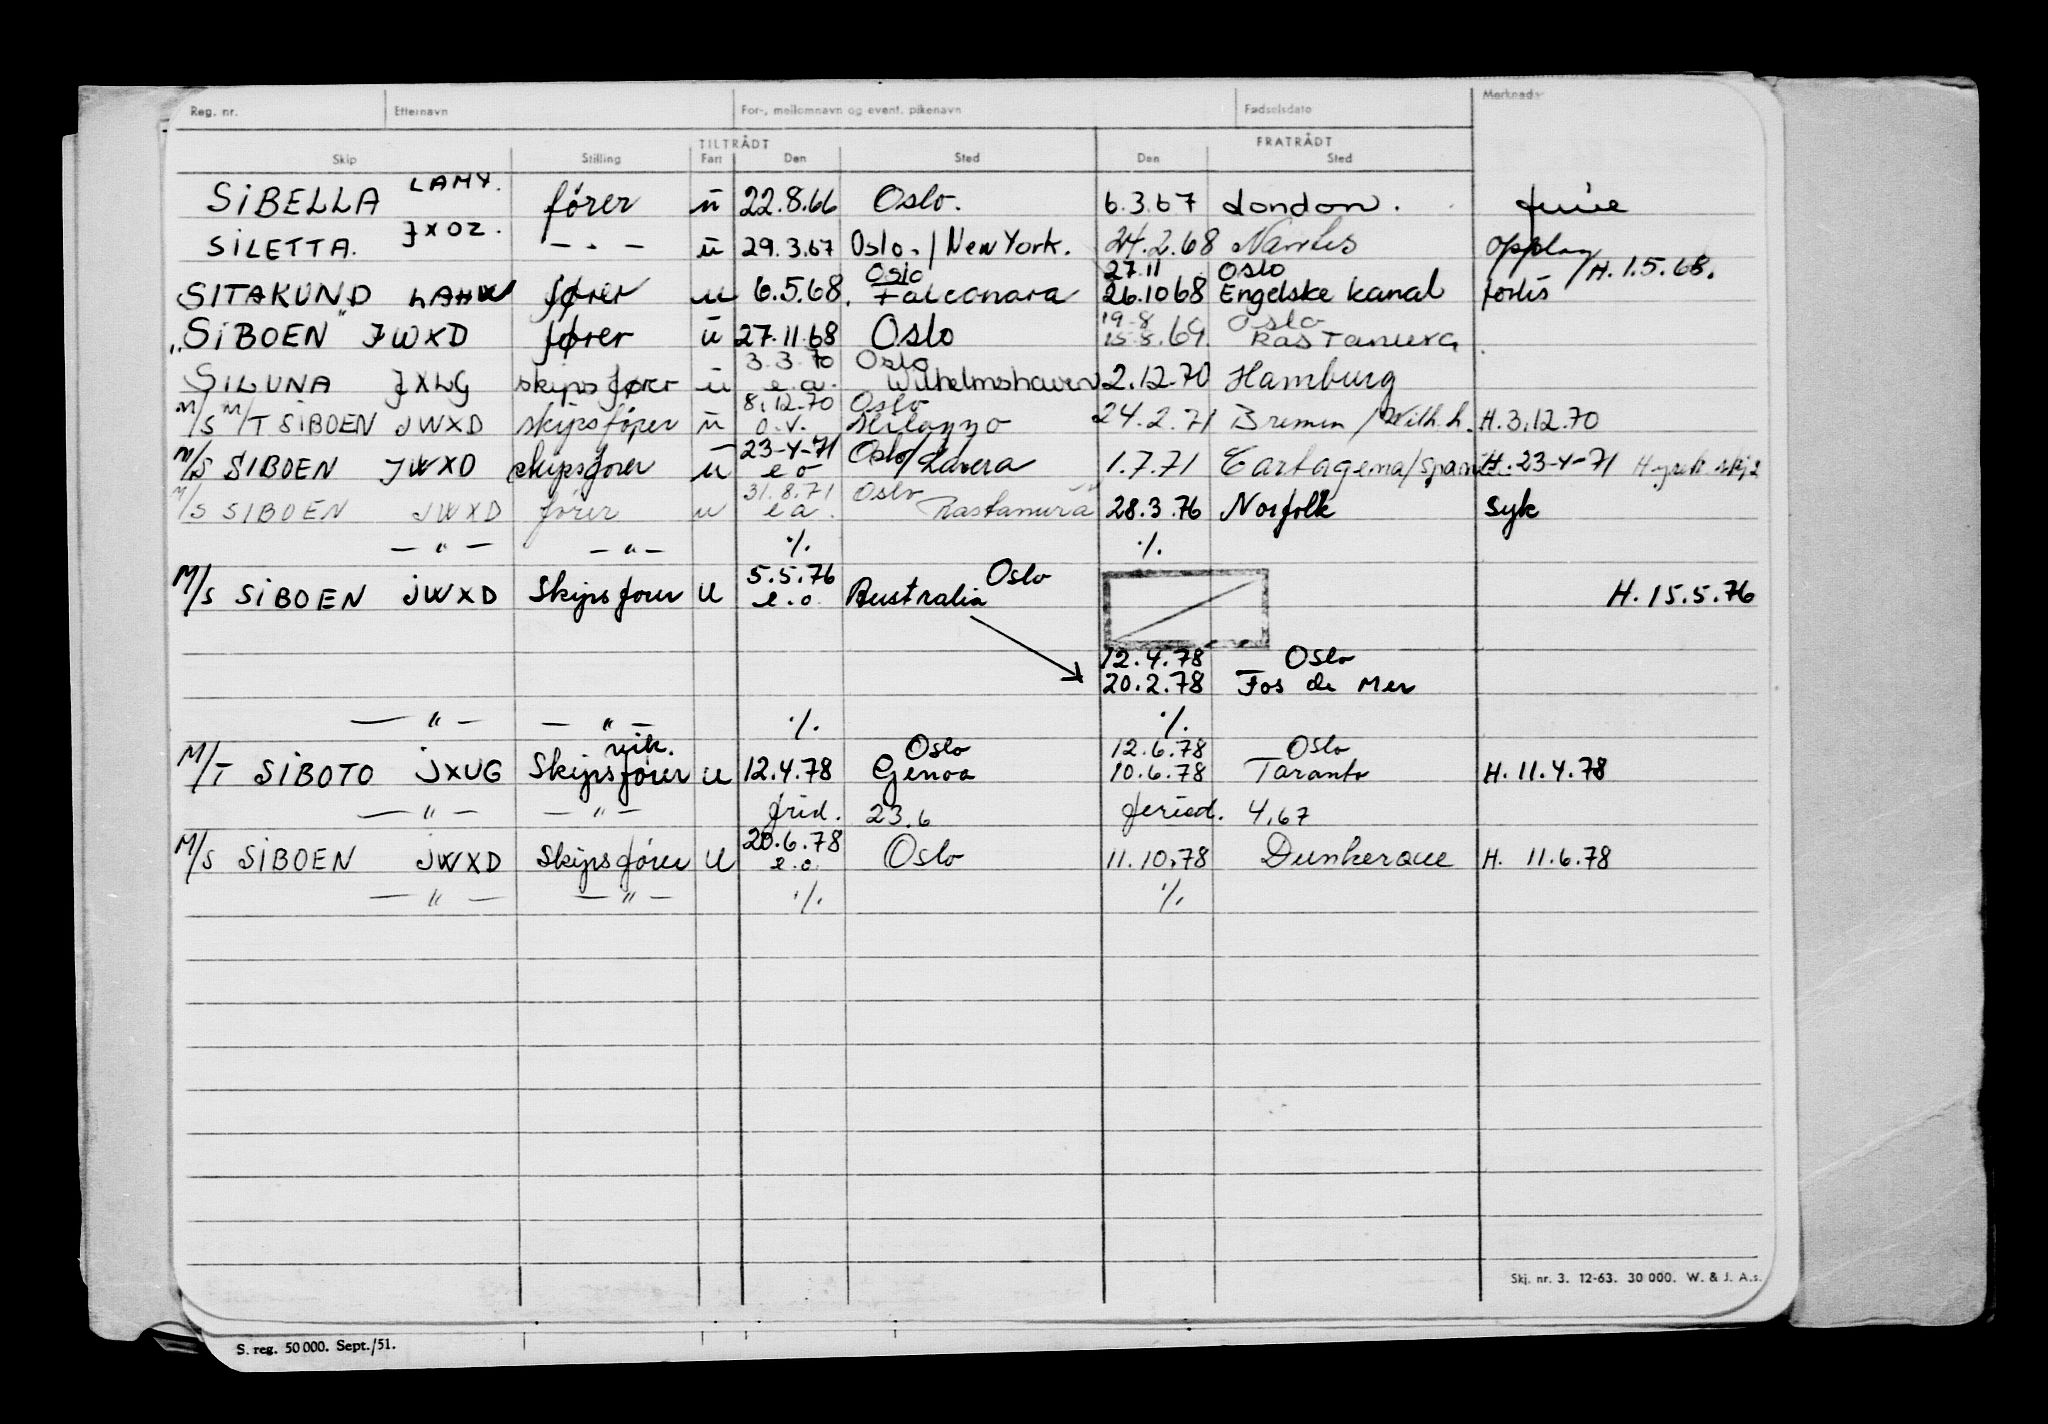 Reg. nr. Efternavn For-, mellomnavn og event. pikenavn Fødselsdato Merknader
TILTRÅDT FRATRÅDT
Skip Stilling Fart Den Sted Den Sted
SIBELLA LAMY. fører ū 22.8.66 Oslo. 6.3.67 London. ferie
SILETTA. JXOZ. — " — ū 29.3.67 Oslo./New York. 24.2.68 Nantes opplag
Oslo 27.11 Oslo H. 1.5.68.
SITAKUND LAHW fører u 6.5.68. Falconara 26.10 68 Engelske kanal forlis
19-8 Oslo
"SIBOEN" JWXD fører ū 27.11.68 Oslo 15.8.69. Rastanura
3.3.70 Oslo
SILUNA JXLG skipsfører ū e.a. Wilhelmshaven 2.12.70 Hamburg
8.12.70 Oslo
M/S M/T SIBOEN JWXD skipsfører ū o.v. Milazzo 24.2.71 Bremen/Wilh.h. H. 3.12.70
23-4-71
M/S SIBOEN JWXD skipsfører ū e o Oslo/Lavera 1.7.71 Cartagema/Spania H. 23-4-71
31.8.71 Oslo
M/S SIBOEN JWXD fører u e a. Rastanura 28.3.76 Norfolk Syk
— " — — " — ./. ./.
5.5.76 Oslo
M/S SIBOEN JWXD Skipsfører U e.o. Australia H. 15.5.76
12.4.78 Oslo
20.2.78 Fos de Mer
— " — — " — ./. ./.
vik. Oslo 12.6.78 Oslo
M/T SIBOTO JXUG Skipsfører U 12.4.78 Genoa 10.6.78 Taranto H. 11.4.78
— " — — " — frid. 23.6 feried. 4,67
20.6.78
M/S SIBOEN JWXD Skipsfører U e.o. Oslo 11.10.78 Dunkerque H. 11.6.78
— " — — " — ./. ./.
Skj. nr. 3. 12-63. 30 000. W. & J. A.s.
S. reg. 50 000. Sept./51.